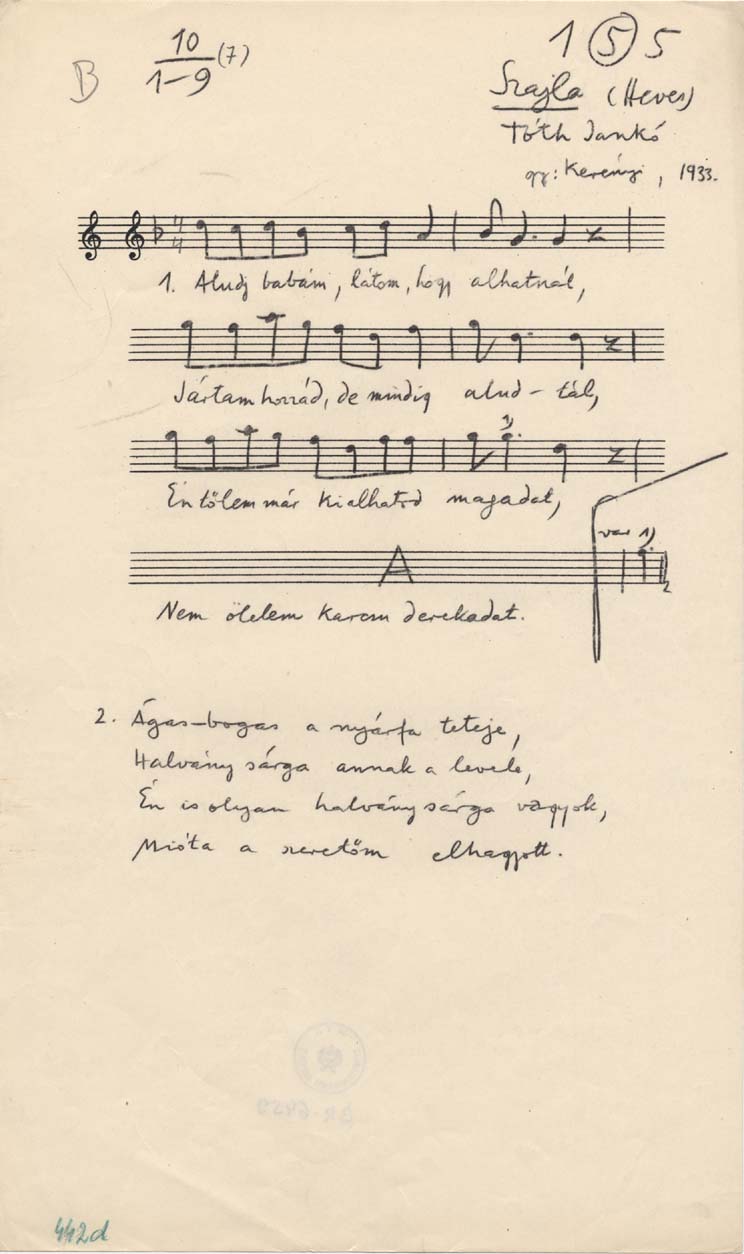 B 10/1-9 (7) 1 5 5
Szajla (Heves)
Tóth Jankó
gy: Kerényi, 1933.
4/4
1. Aludj babám, látom, hogy alhatnál,
Jártam hozzád, de mindig alud-tál,
1)
Én tőlem már kialhatod magadat,
var 1)
A
2
Nem ölelem karcsu derekadat.
2. Ágas-bogas a nyárfa teteje,
Halvány sárga annak a levele,
Én is olyan halvány sárga vagyok,
Mióta a szeretőm elhagyott.
442d